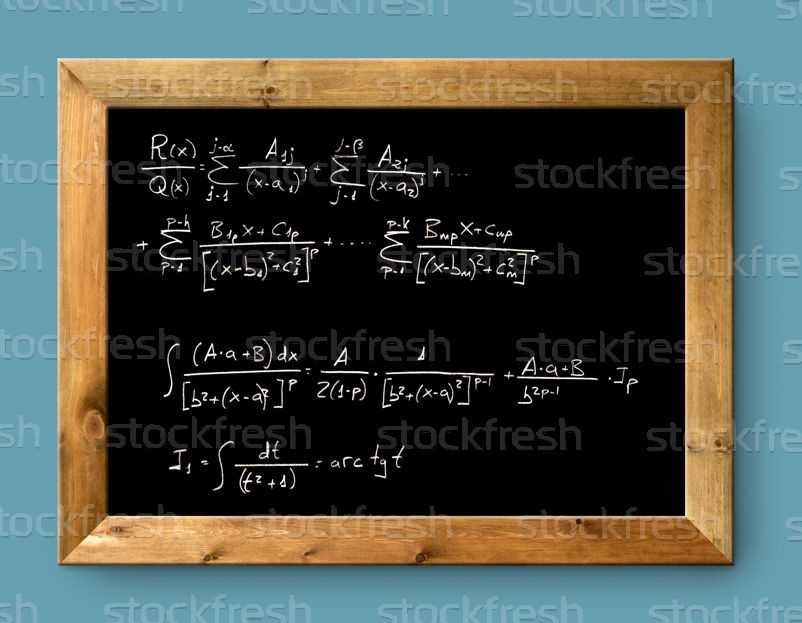 R(x)/Q(x) = ∑_{j-1}^{j-α} A_{1j}/(x-a_1)^j + ∑_{j-1}^{j-β} A_{2j}/(x-a_2)^j + ...
+ ∑_{p-1}^{p-h} (B_{1p}x + C_{1p})/[(x-b_1)^2+c_1^2]^p + .... ∑_{p-1}^{p-k} (B_{mp}x + C_{mp})/[(x-b_m)^2+c_m^2]^p
∫ (A·a+B)dx/[b^2+(x-a)^2]^p = A/2(1-p) · 1/[b^2+(x-a)^2]^{p-1} + (A·a+B)/b^{2p-1} · I_p
I_1 = ∫ dt/(t^2+1) = arc tg t
stockfresh